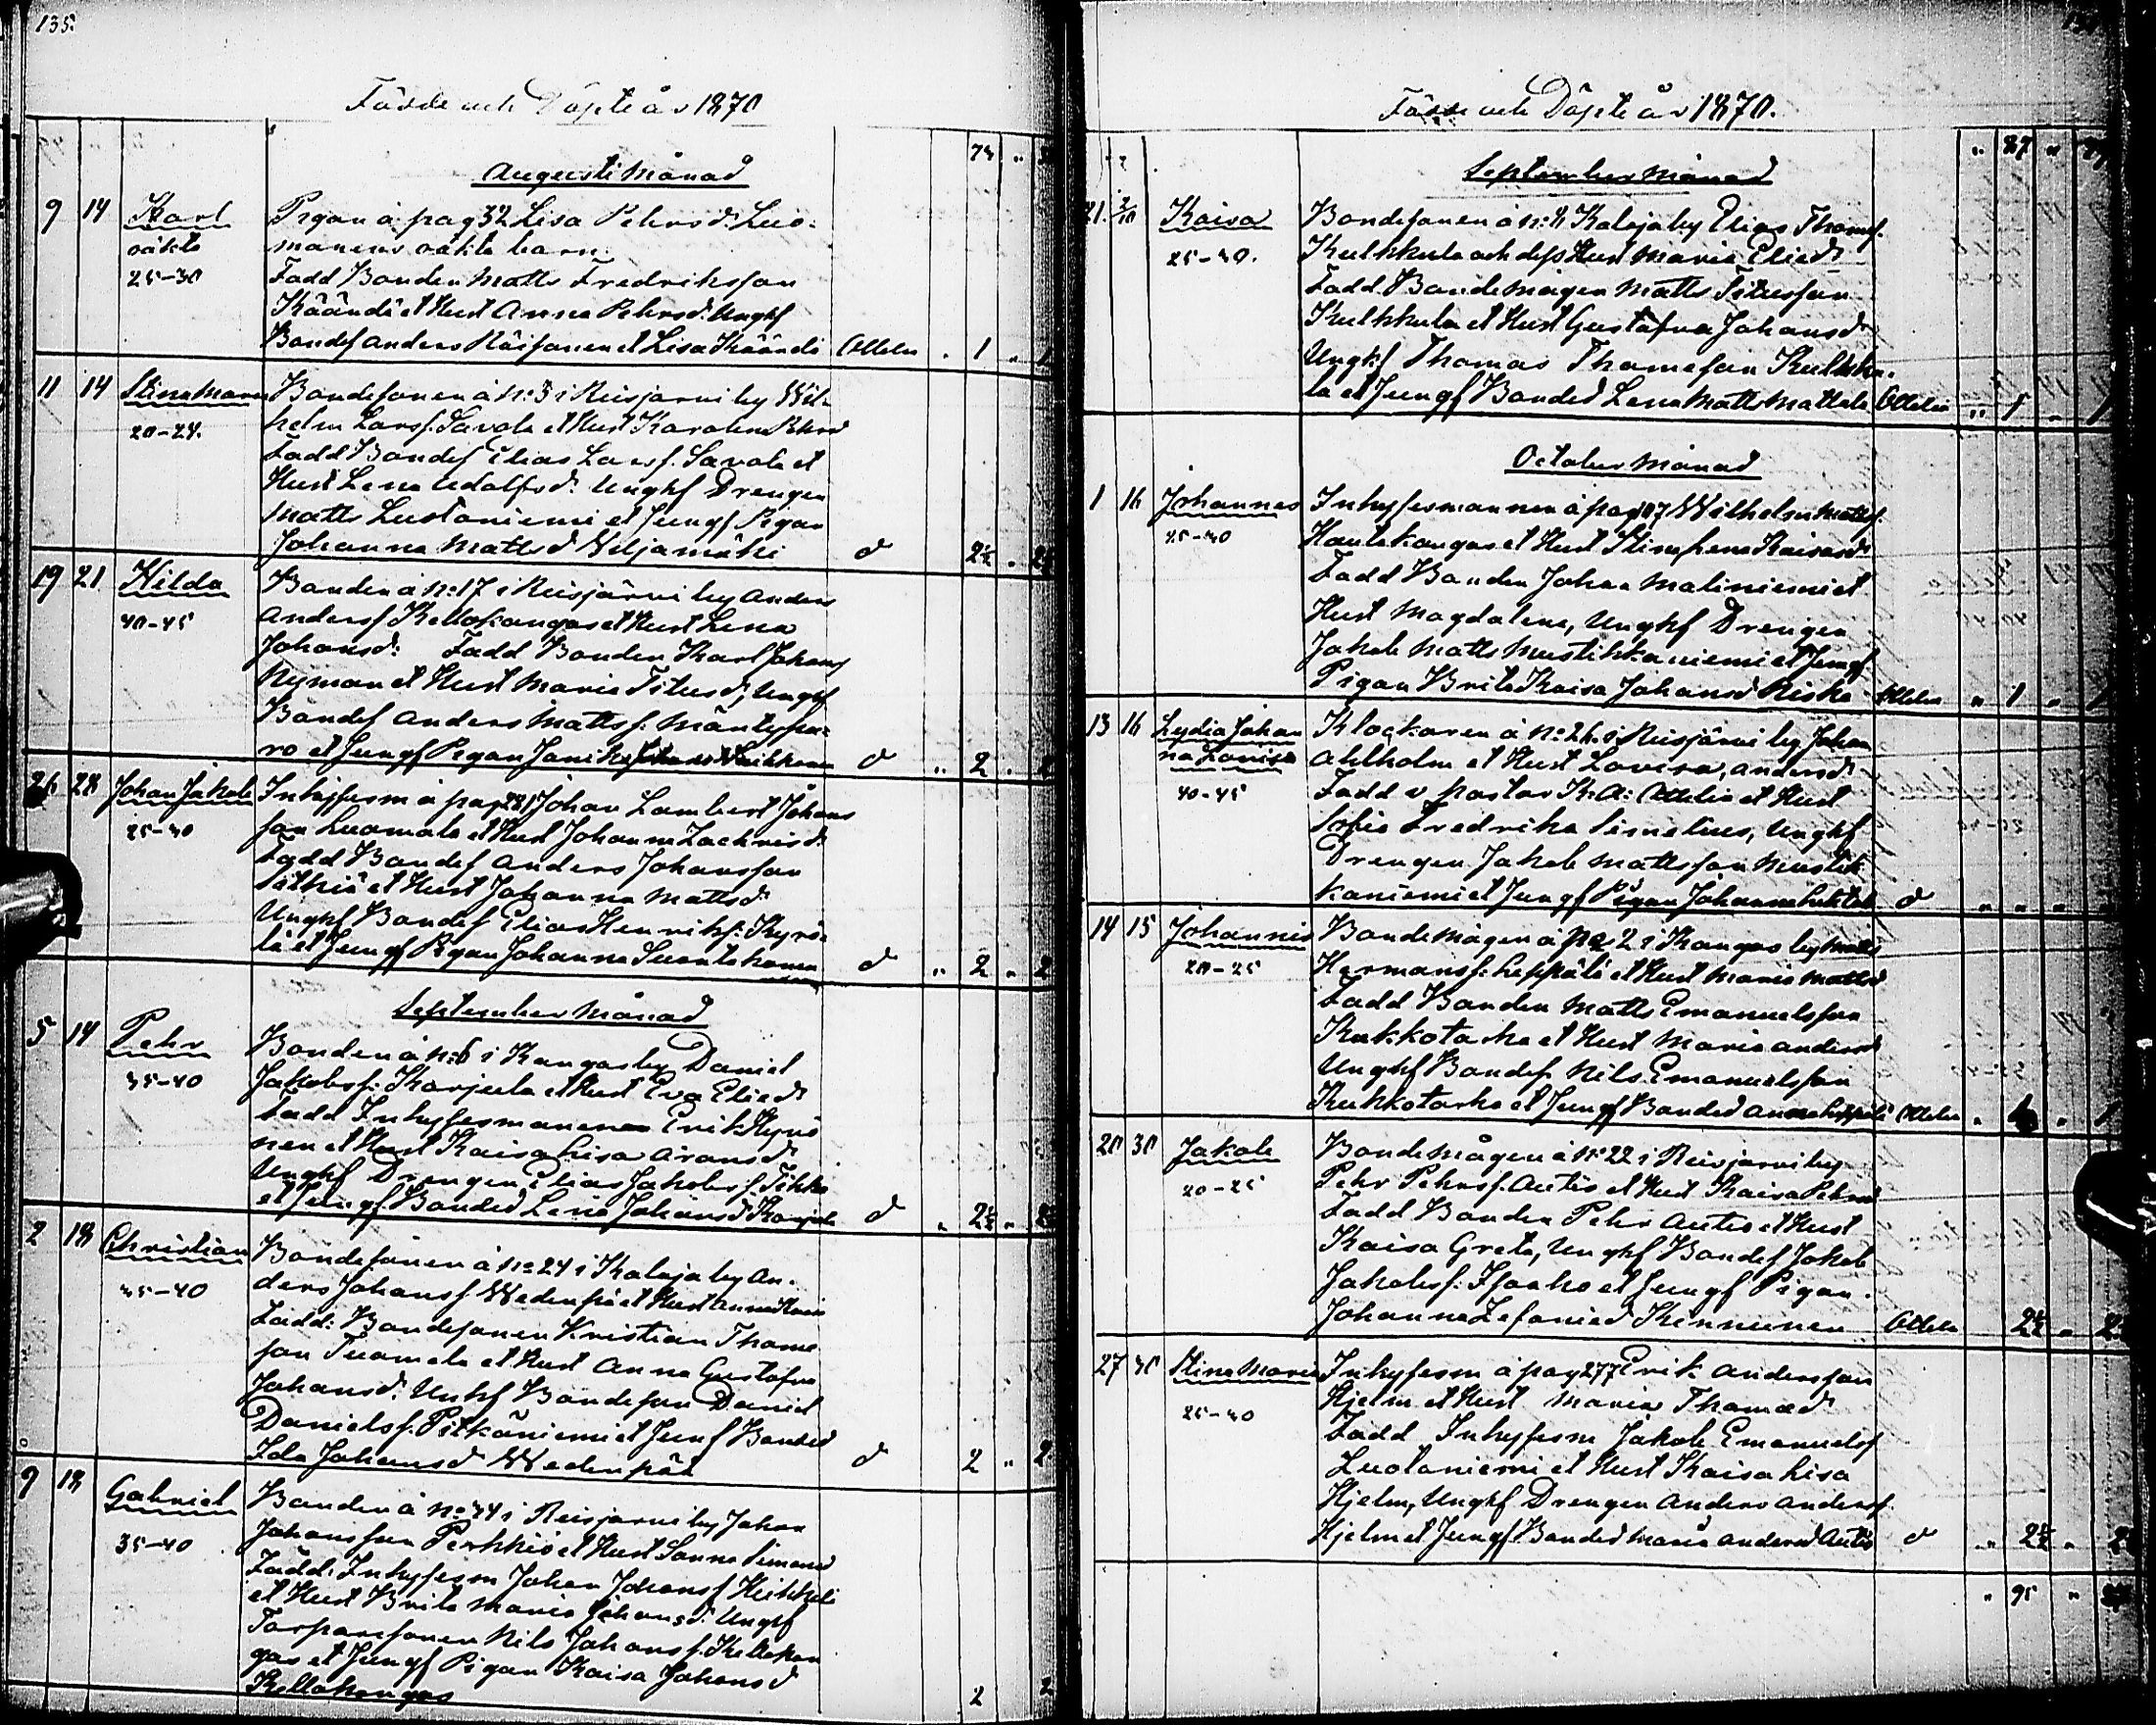 135.
Födde och Döpte år 1870
74 "
Augusti Månad
9 14 Karl
oäkta
25-30
Pigan å pag 32 Lisa Pehrsd: Luo-
manens oäkta barn.
Fadd Bonden Matts Fredriksson
Käändä et Hust Anna Pehrsd. Unghf
Bondes Anders Räisänen et Lisa Käändä Ottelin " 1 " 1
11 14 Stina Maria
20-24.
Bondesonen å No: 3 i Reisjärvi by Wil-
helm Larsf. Savola et Hust Karolina Pehrsd
Fadd Bondes Elias Larsf. Savola et
Hust Lena Adolfsd: Unghf Drengen
Matts Lustaniemi et Jungf Pigan
Johanna Mattsd Viljamäki d 2½ "
19 21 Hilda
40-45
Bonden å No: 17 i Reisjärvi by Anders
Andersf Kellokangas et Hust Lena
Johansd: Fadd Bonden Karl Johansf
Nyman et Hust Maria Titusd, Unghf
Bondes Anders Mattsf. Mäntypu-
ro et Jungf Pigan d " 2 "
26 28 Johan Jakob
25-30
Inhysesm å pag 281 Johan Lambert Johans
son Luomala et Hust Johanna Zachrisd:
Fadd Bondes Anders Johansson
et Hust Johanna Mattsd:
Unghf Bondes Elias Henriksf: Kyrö-
lä et Jungf Pigan Johanna d " 2 " 2
September Månad
5 14 Pehr
35-40
Bonden å No: 6 i Kangas by Daniel
Jakobsf: Karjula et Hust Eva Eliasd:
Fadd Inhysesmannen Erik
nen et Hust Kaisa Lisa Aronsd:
Unghf Drengen Elias Jakobsf.
et Jungf. Bonded Lena Johansd Karjula d " 2½ "
2 18 Christian
35-40
Bondesonen å No 24 i Kalaja by An-
ders Johansf Wedenpää et Hust Anna Kaisa
Fadd: Bondesonen Kristian Thoma
son Tuomala et Hust Anna Gustafva
Johansd: Unghf Bondeson Daniel
Danielsf. Pitkäniemi et Jungf Bonded
Ida Johansd Wedenpää d 2 " 2
9 18 Gabriel
35-40
Bonden å No: 34 i Reisjärvi by Johan
Johansson Perkkiö et Hust Sanna Simonsd
Fadd: Inhysesm Johan Johansf Heikkilä
et Hust Brita Maria Johansd: Unghf
Torparesonen Nils Johansf. Kellokan
gas et Jungf Pigan Kaisa Johansd
Kellokangas 2 2
Födde och Döpte år 1870.
" 87 "
September Månad
21 2/10 Kaisa
25-30.
Bondesonen å No: 8 Kalaja by Elias Thomasf.
Kulkkula och dess Hust Maria Eliasd:
Fadd. Bondemågen Matts Titusson
Kulkkula et Hust Gustafva Johansd:
Unghf Thomas Thomasson Kulkku-
la et Jungf Bonded Lena Matts Mattala Ottelin " 1 " 1
October Månad
1 16 Johannes
25-30
Inhysesmannen å pag 107 Wilhelm Mattsf.
Hautakangas et Hust Stina Lena Kaisasd:
Fadd Bonden Johan Maliniemi et
Hust Magdalena, Unghf Drengen
Jakob Matts Mustikkaniemi et Jungf
Pigan Brita Kaisa Johansd Niska Ottelin " 1 " 1
13 16 Lydia Johan
na Lovisa
40-45
Klockaren å No: 26. i Reisjärvi by Johan
Ahlholm et Hust Lovisa, Andersd:
Fadd v pastor K: A: Ottelin et Hust
Sofia Fredrika Simelius, Unghf
Drengen Jakob Mattsson Mustik-
kaniemi et Jungf Pigan Johanna d " " "
14 15 Johannis
20-25
Bondemågen å 2 i Kangas by Matts
Hermansf: Leppälä et Hust Maria Mattsd
Fadd Bonden Matts Emanuelsson
Kukkotarha et Hust Maria Andersd
Unghf Bondes Nils Emanuelsson
Kukkotarha et Jungf Bonded Anna Leppälä Ottelin " " 1
20 30 Jakob
20-25
Bondemågen å No: 22 i Reisjärvi by
Pehr Pehrsf. Autio et Hust Kaisa Pehrsd
Fadd Bonden Pehr Autio et Hust
Kaisa Greta, Unghf Bondes Jakob
Jakobsf: Isoaho et Jungf Pigan.
Johanna Zefaniasd Kinnunen Ottelin 2½ "
27 30 Stina Maria
25-30
Inhysesm å pag 277 Erik Andersson
Hjelm et Hust Maria Thomasd:
Fadd Inhysesm Jakob Emanuelsf
Luotaniemi et Hust Kaisa Lisa
Hjelm, Unghf Drengen Anders Andersf.
Hjelm et Jungf Bonded Maria Andersd Autio d " 2½ "
" 95 "